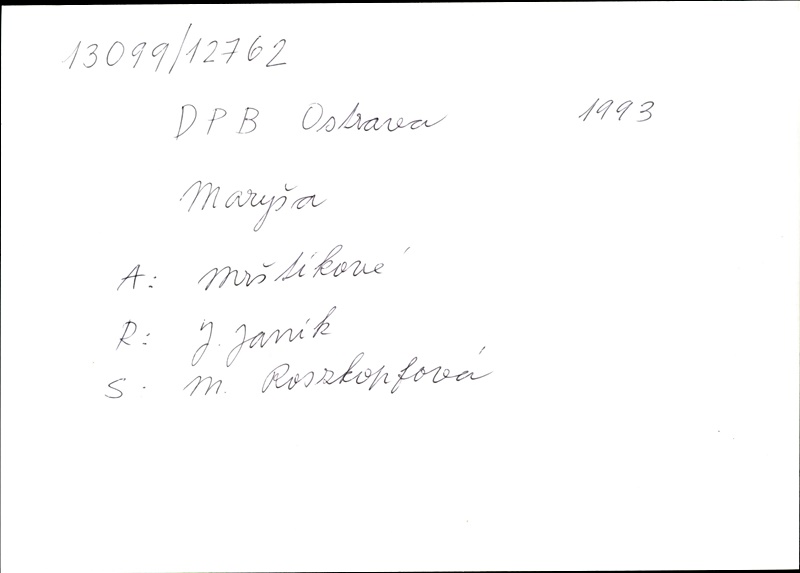 13099/12762
DPB Ostrava 1993
Maryša
A: Mrštíkové
R: J. Janík
S: M. Roszkopfová